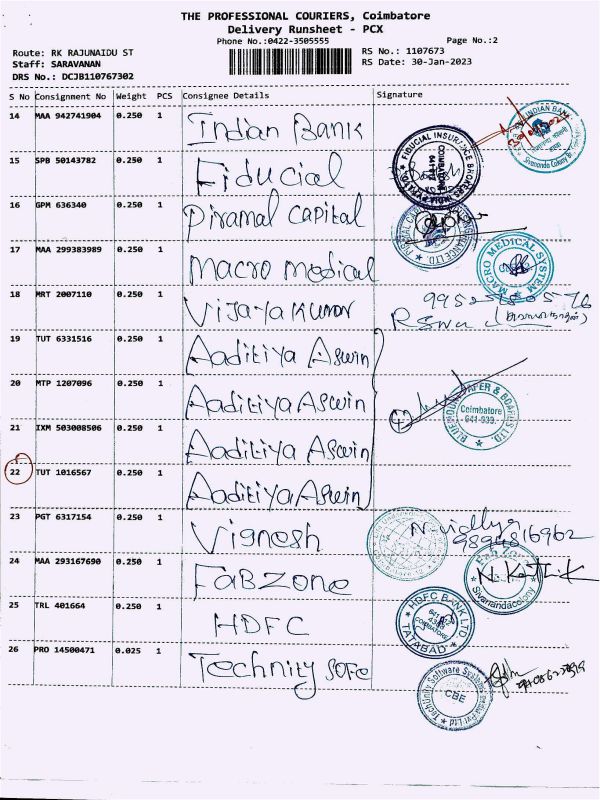 THE PROFESSIONAL COURIERS, Coimbatore
Delivery Runsheet - PCX
Phone No.:0422-3505555 Page No.:2
Route: RK RAJUNAIDU ST RS No.: 1107673
Staff: SARAVANAN RS Date: 30-Jan-2023
DRS No.: DCJB110767302
S No Consignment No Weight PCS Consignee Details Signature
14 MAA 942741904 0.250 1 Indian Bank
INDIAN BANK
Sivananda Colony
15 SPB 50143782 0.250 1 Fiducial
FIDUCIAL INSURANCE BROKERS
COIMBATORE
16 GPM 636340 0.250 1 Piramal Capital
17 MAA 299383989 0.250 1 Macro Medical
MACRO MEDICAL SYSTEM
18 MRT 2007110 0.250 1 Vijaya Kumar
19 TUT 6331516 0.250 1 Aaditiya Aswin
20 MTP 1207096 0.250 1 Aaditiya Aswin
Coimbatore
641-039.
21 IXM 503008506 0.250 1 Aaditiya Aswin
22 TUT 1016567 0.250 1 Aaditiya Aswin
23 PGT 6317154 0.250 1 Vignesh
N. vidhya
9894816962
24 MAA 293167690 0.250 1 FabZone
Fab Zone
Sivanandacolony
N. Karthik
25 TRL 401664 0.250 1 HDFC
HDFC BANK LTD
COIMBATORE
TATABAD
26 PRO 14500471 0.025 1 Technity Sofe
TechUnity Software Systems India Pvt Ltd
CBE